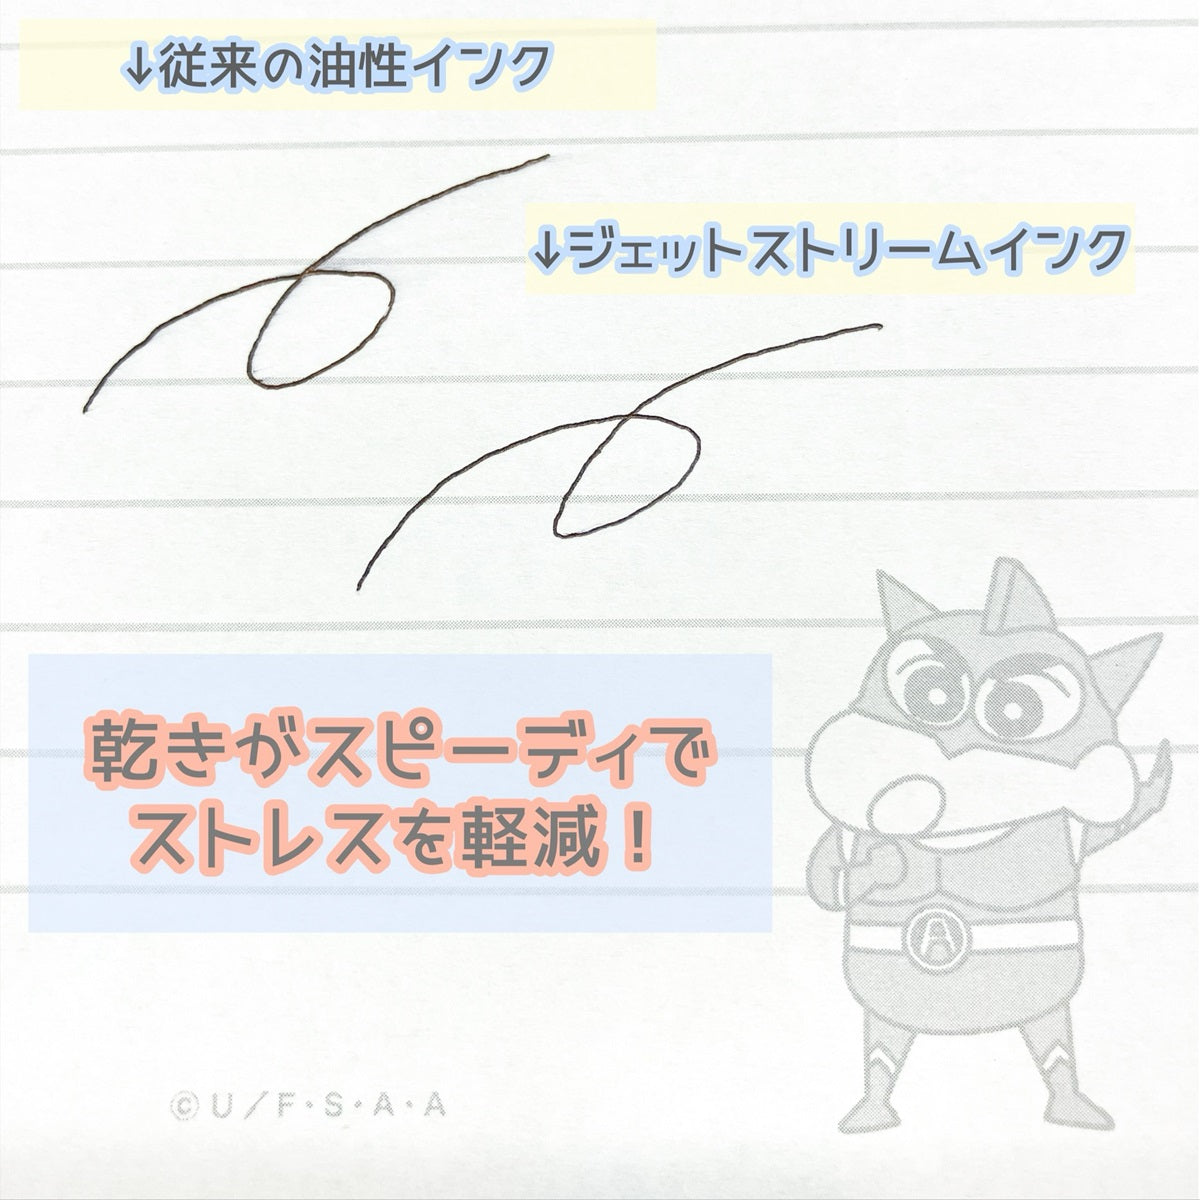 ↓従来の油性インク
↓ジェットストリームインク
乾きがスピーディで
ストレスを軽減！
A
©U/F・S・A・A